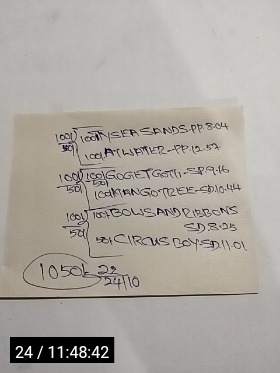 100/ 100/TYSEA SANDS-PP.8.04
50/
100/ATWATER-PP.12.57
100/ 100/GOGETGOTTI-SP.9.16
50/ 50/
100/MANGOTREE-SD10.44
100/ 100/BOWSANDRIBBONS
50/ SD8.25
50/CIRCUS BOY-SD.11.01
1050/- 22
24/10
24 / 11:48:42